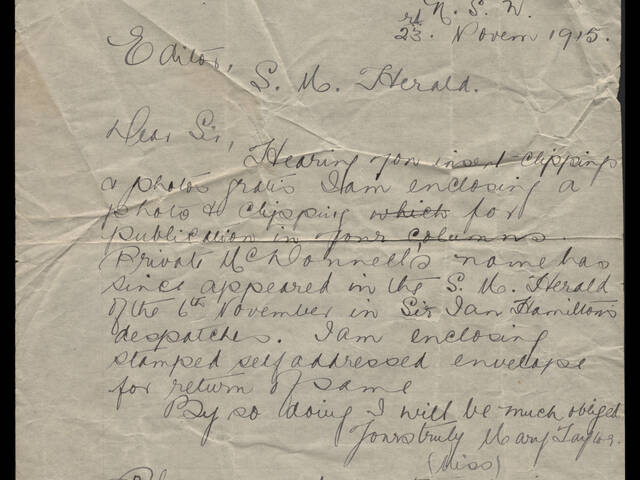 N. S. W.
23rd. Novem 1915.
Editor,
S. M. Herald.
Dear Sir,
Hearing you insert clippings
& photos gratis I am enclosing a
photo & clipping which for
publication in your columns.
Private McDonnell's name has
since appeared in the S. M. Herald
of the 6th November in Sir Ian Hamilton's
despatches. I am enclosing
stamped self addressed envelope
for return of same
By so doing I will be much obliged
Yours truly Mary Taylor.
(Miss)